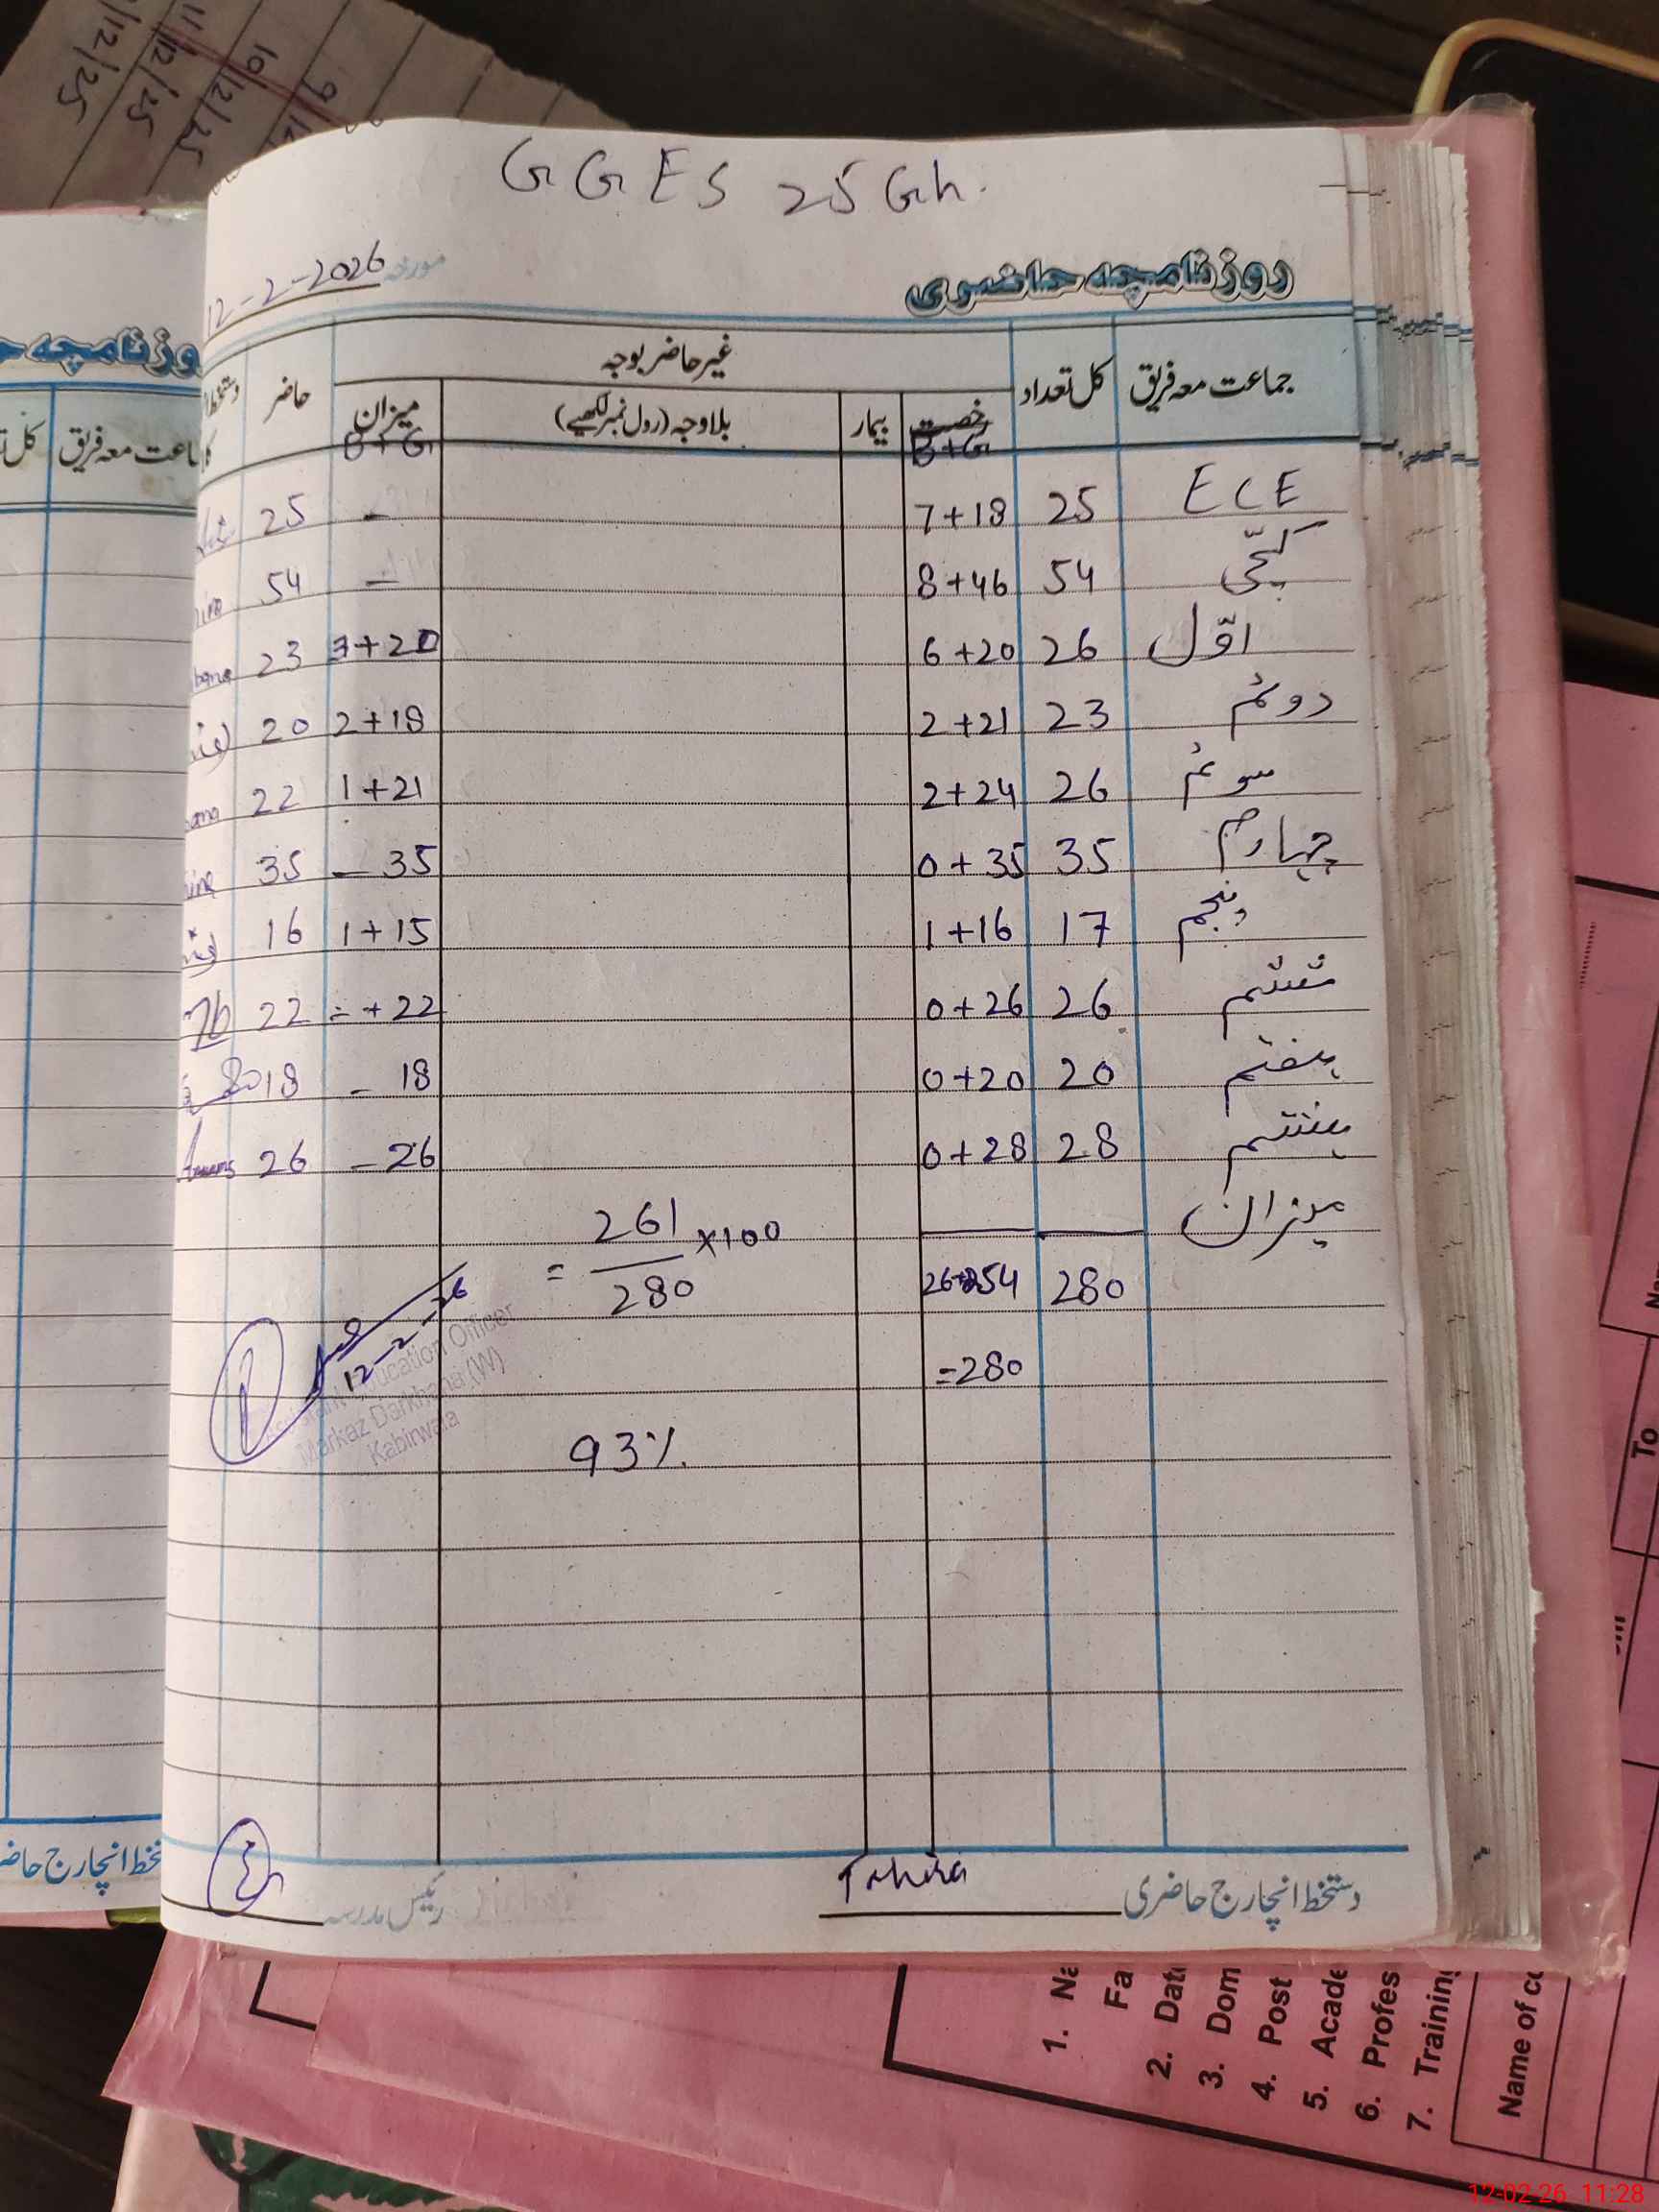 11/12/25
10/12/25
G G E S 25 Gh.
روزنامچہ حاضری
مورخہ 12-2-2026
جماعت معہ فریق کل تعداد غیر حاضر بوجہ حاضر
رخصت بیمار بلا وجہ (رول نمبر لکھیے) میزان
B+G B+G
ECE 25 7+18 - 25
کچی 54 8+46 - 54
اوّل 26 6+20 3+20 23
دوئم 23 2+21 2+18 20
سوئم 26 2+24 1+21 22
چہارم 35 0+35 - 35 35
پنجم 17 1+16 1+15 16
ششم 26 0+26 +22 22
ہفتم 20 0+20 - 18 18
ہشتم 28 0+28 - 26 26
میزان
280 26+254
= 261/280 ×100
=280
93%
12-2-26
Assistant Education Officer
Markaz Darkhana (W)
Kabirwala
دستخط انچارج حاضری Tahira
رئیس مدرسہ
جماعت معہ فریق
To
1. Na
Fa
2. Dat
3. Dom
4. Post
5. Acade
6. Profes
7. Training
Name of co
12-02-26 11:28